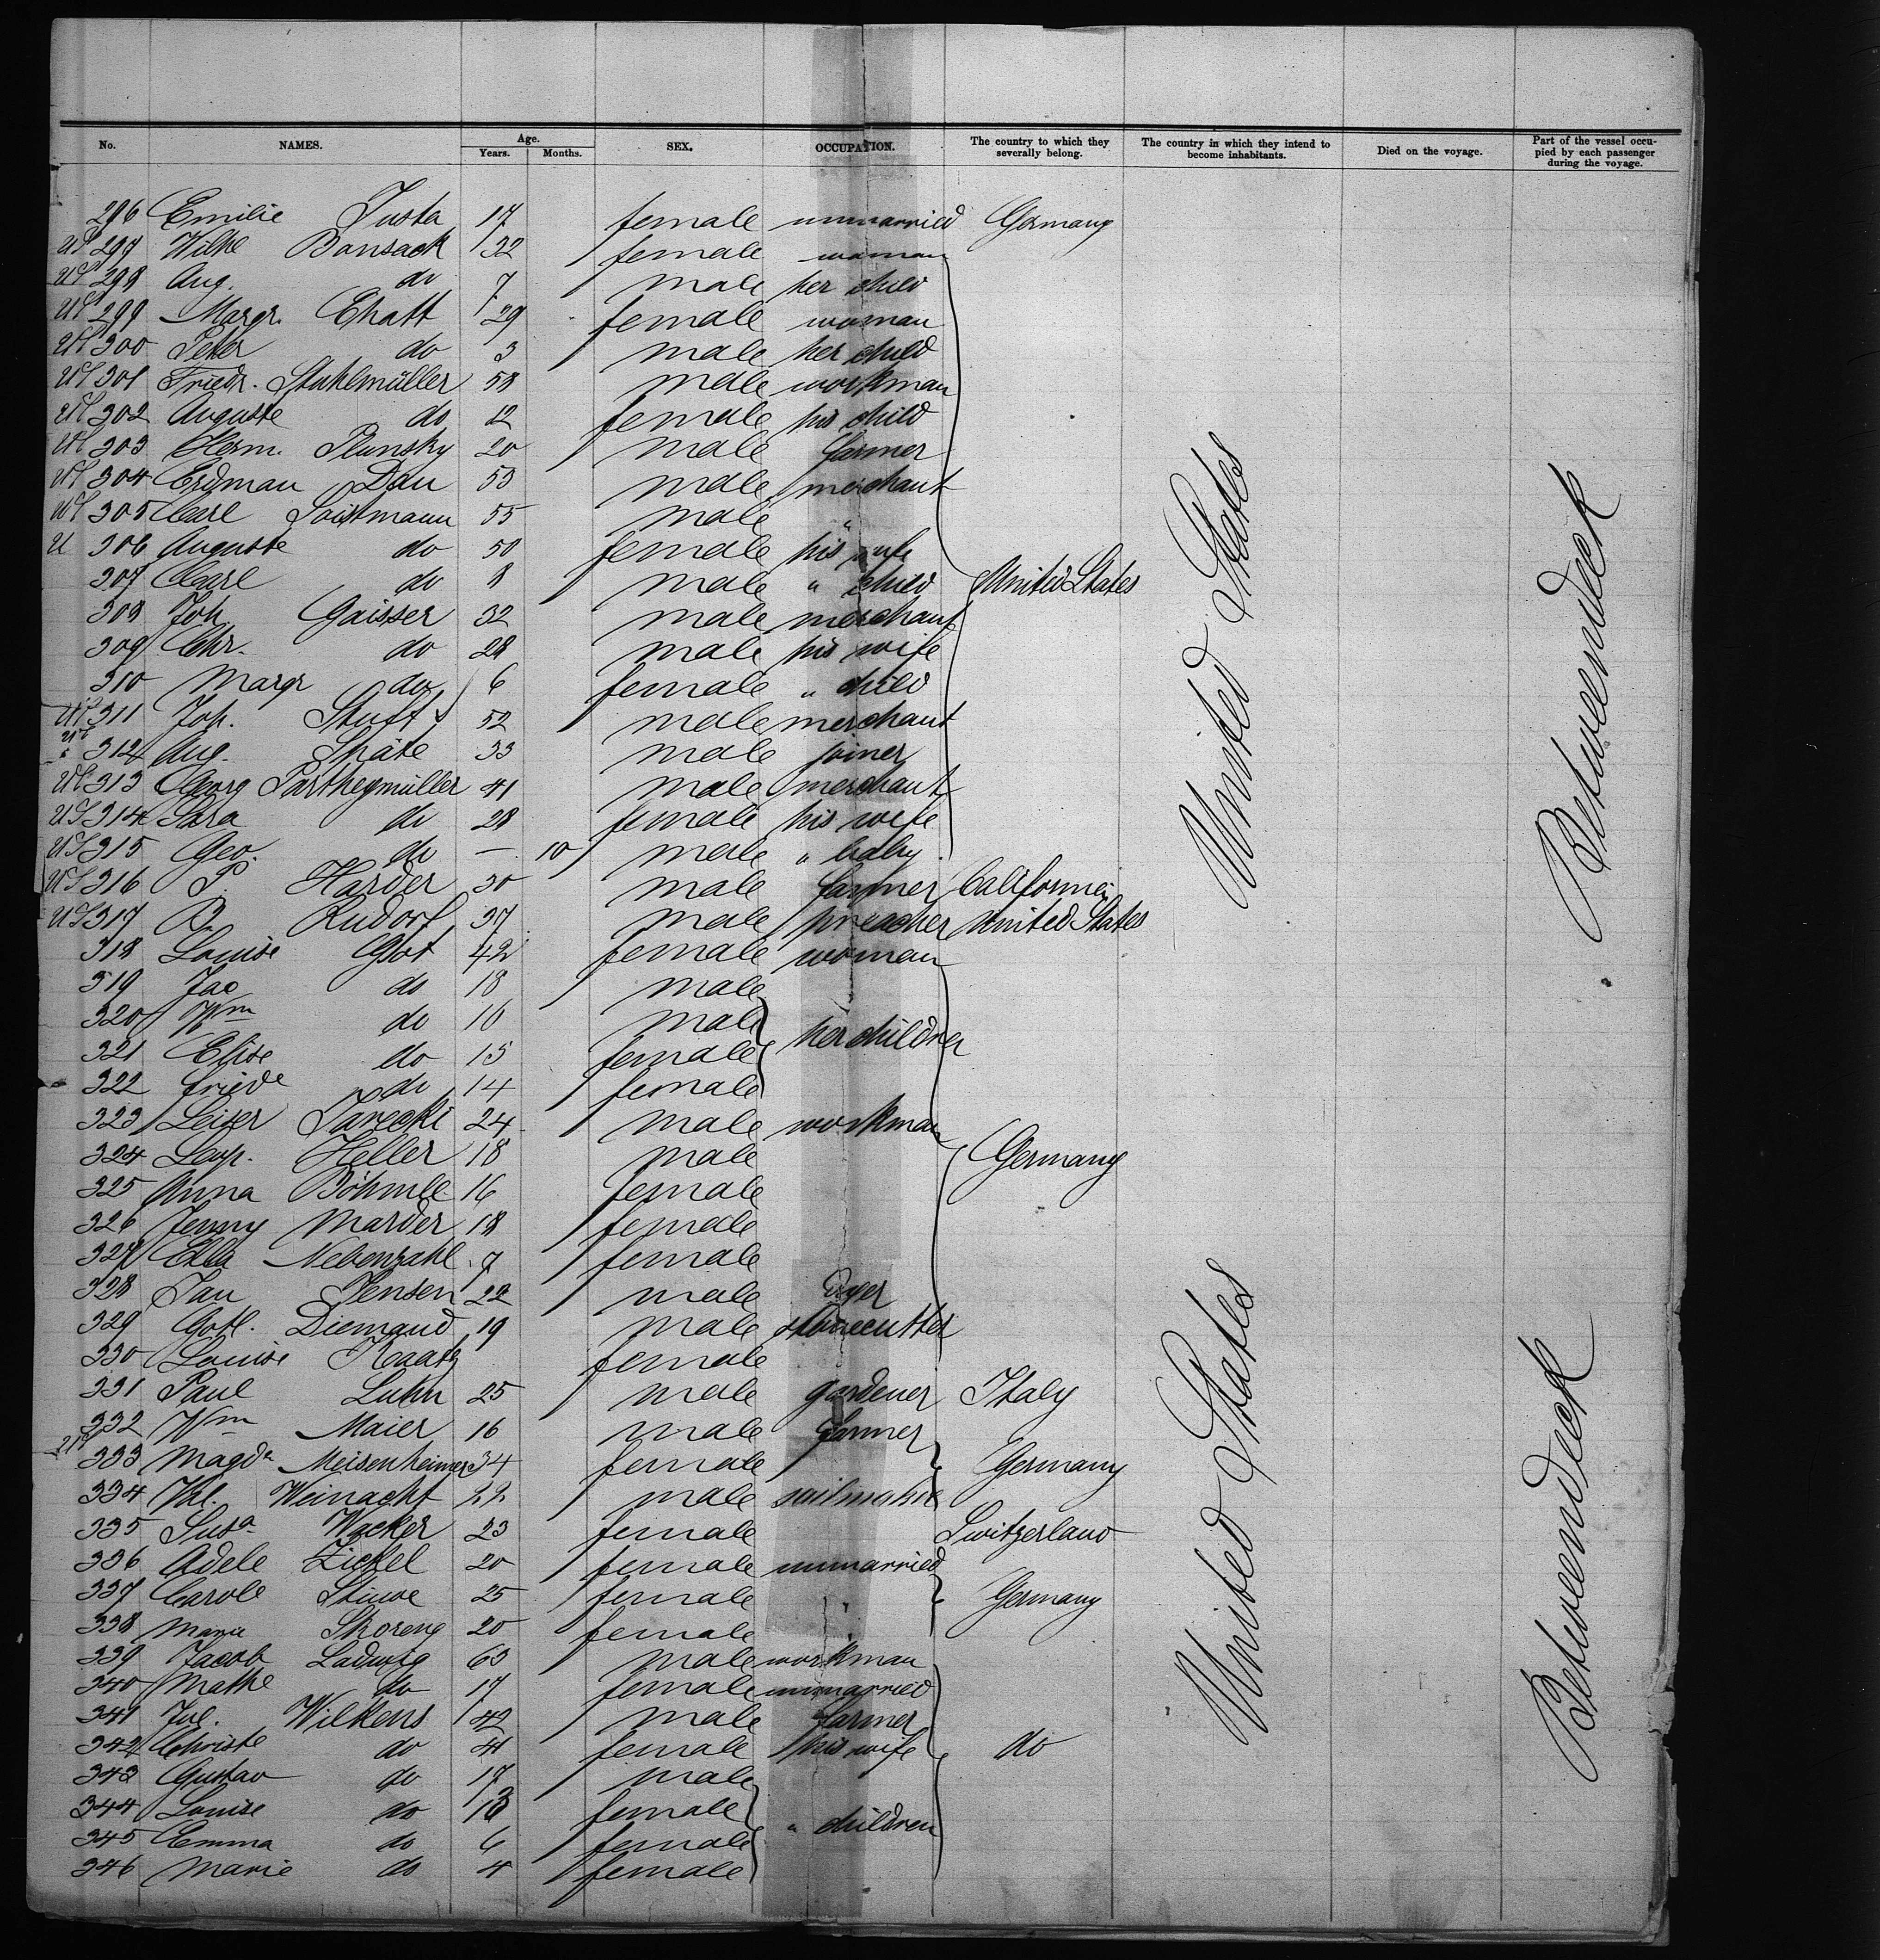 No. NAMES. Age. Years. Months. SEX. OCCUPATION. The country to which they severally belong. The country in which they intend to become inhabitants. Died on the voyage. Part of the vessel occupied by each passenger during the voyage.
296 Emilie Justa 17 female unmarried Germany
297 Wilhe Bonsack 32 female woman
298 Aug. do 7 male her child
299 Margr. Chatt 29 female woman
300 Peter do 3 male her child
301 Friedr. Stahlmüller 58 male workman
302 Auguste do 12 female his child
303 Herm. Plunsky 20 male farmer
304 Erdman Dau 53 male merchant
305 Carl Soistmann 55 male "
306 Auguste do 50 female his wife
307 Carl do 8 male " child United States
308 Joh Gaisser 32 male merchant
309 Chr. do 28 male his wife
310 Margr do 6 female " child
311 Joh. Stuft 52 male merchant
312 Aug. Späte 33 male joiner
313 Georg Partheymüller 41 male merchant
314 Sara do 28 female his wife
315 Geo. do — 10 male " baby
316 P. Harder 30 male farmer California
317 R. Rudorf 37 male preacher United States
318 Louise Glot 42 female woman
319 Jac do 18 male
320 Wm do 16 male her children
321 Elise do 15 female
322 Friede do 14 female
323 Leiser Sarecki 24 male workman
324 Leop. Heller 18 male Germany
325 Anna Böhmle 16 female
326 Jenny Marder 18 female
327 Ella Nebenzahl 7 female
328 Jau Jensen 22 male Dyer
329 Gotl. Diemand 19 male stonecutter
330 Louise Kaatz female
331 Paul Luhn 25 male gardener Italy
332 Wm Maier 16 male farmer
333 Magda Meisenheimer 34 female Germany
334 Val. Weinacht 22 male sailmaker
335 Susa Wacker 23 female Switzerland
336 Adele Zickel 20 female unmarried
337 Carole Stuwe 25 female " Germany
338 Marie Skoreng 20 female "
339 Jacob Ladwig 63 male workman
340 Mathe do 17 female unmarried
341 Jul. Wilkens 42 male farmer
342 Christe do 41 female his wife do
343 Gustav do 17 male
344 Louise do 13 female " children
345 Emma do 6 female
346 Marie do 4 female
United States
Betweendeck
United States
Betweendeck